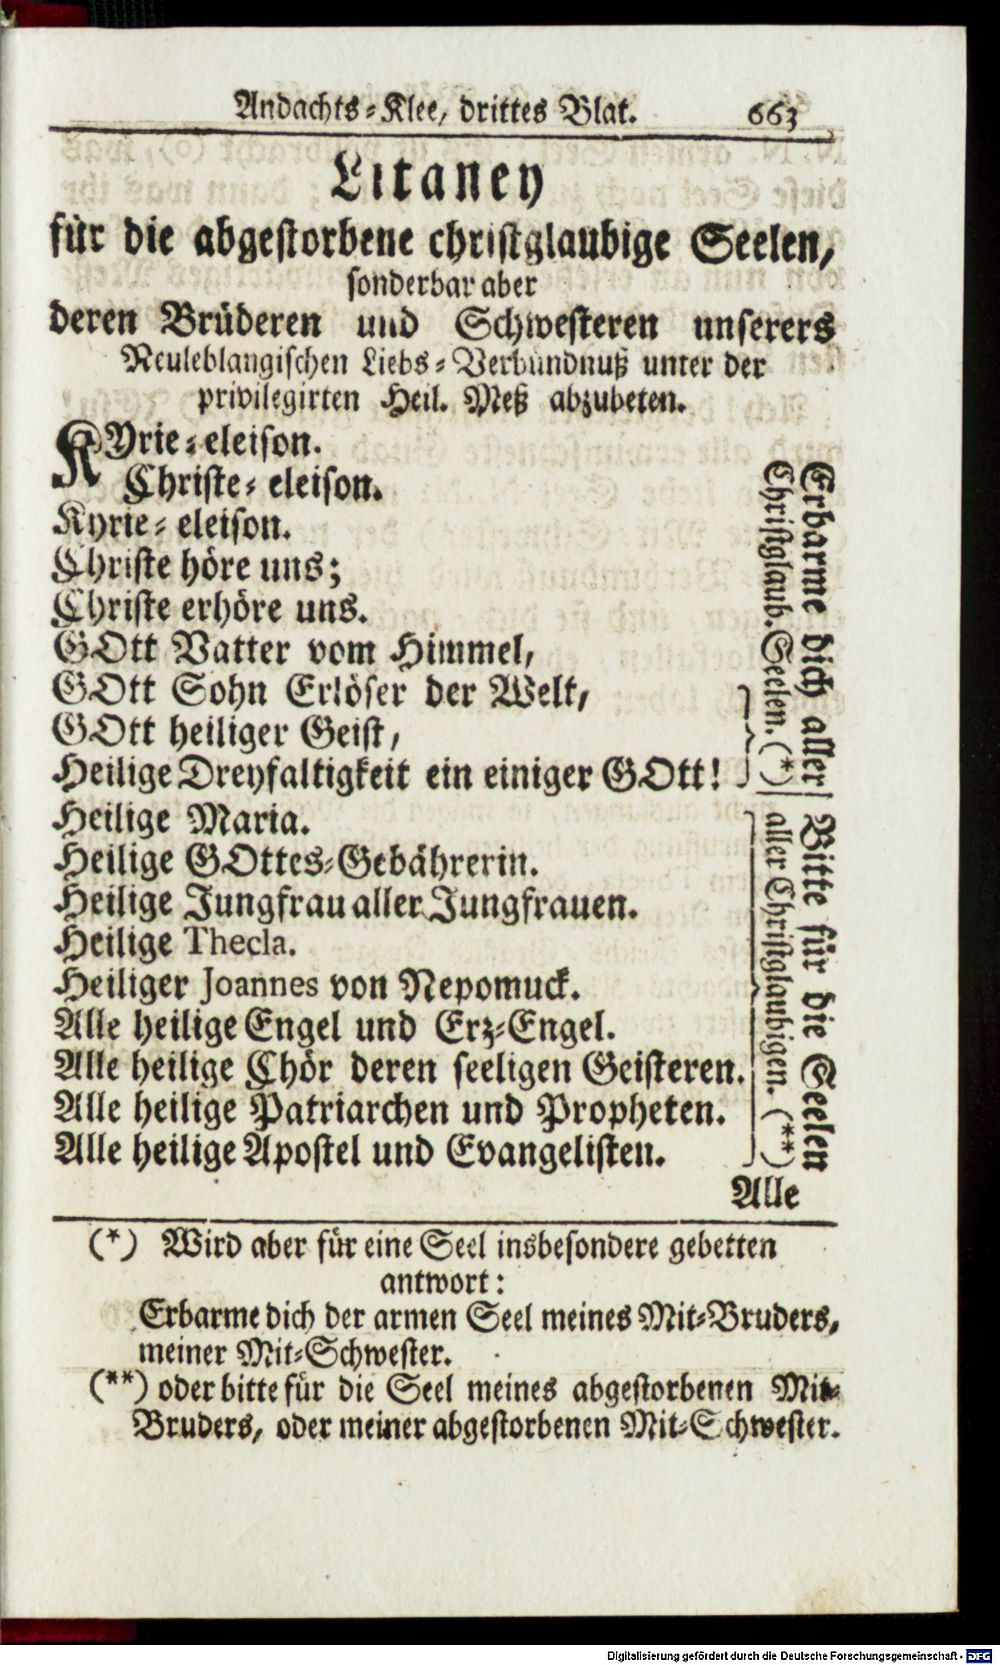 Andachts-Klee, drittes Blat. 663
Litaney
für die abgestorbene christglaubige Seelen,
sonderbar aber
deren Brüderen und Schwesteren unserers
Neuleblangischen Liebs-Verbündnuß unter der
privilegirten Heil. Meß abzubeten.
KYrie-eleison.
Christe-eleison.
Kyrie-eleison.
Christe höre uns;
Christe erhöre uns.
GOtt Vatter vom Himmel,
GOtt Sohn Erlöser der Welt,
GOtt heiliger Geist,
Heilige Dreyfaltigkeit ein einiger GOtt!
Erbarme dich aller
Christglaub. Seelen. (*)
Heilige Maria.
Heilige GOttes-Gebährerin.
Heilige Jungfrau aller Jungfrauen.
Heilige Thecla.
Heiliger Joannes von Nepomuck.
Alle heilige Engel und Erz-Engel.
Alle heilige Chör deren seeligen Geisteren.
Alle heilige Patriarchen und Propheten.
Alle heilige Apostel und Evangelisten.
Bitte für die Seelen
aller Christglaubigen. (**)
Alle
(*) Wird aber für eine Seel insbesondere gebetten
antwort:
Erbarme dich der armen Seel meines Mit-Bruders,
meiner Mit-Schwester.
(**) oder bitte für die Seel meines abgestorbenen Mit-
Bruders, oder meiner abgestorbenen Mit-Schwester.
Digitalisierung gefördert durch die Deutsche Forschungsgemeinschaft - DFG